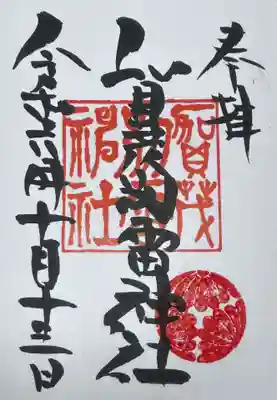 奉拝
賀茂別雷神社
賀茂
神社
令和六年十月十三日